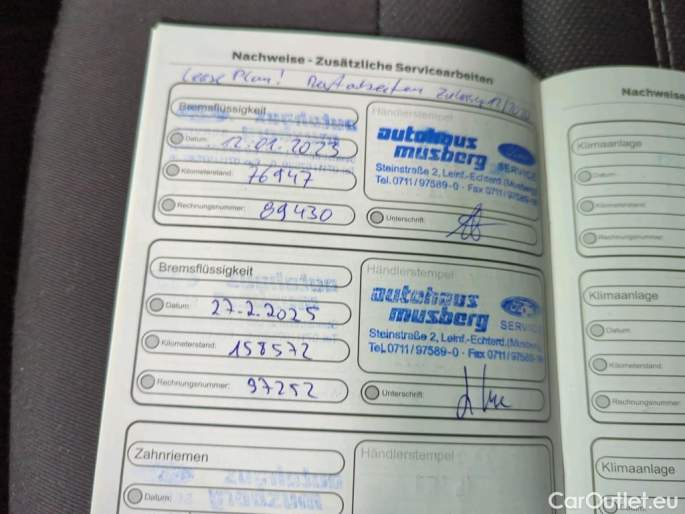 Nachweise - Zusätzliche Servicearbeiten
Lease Plan!
Bremsflüssigkeit
Datum: 12.01.2023
Kilometerstand: 76947
Rechnungsnummer: 89430
Händlerstempel
autohaus
musberg
Ford
SERVICE
Steinstraße 2, Leinf.-Echterd.(Musberg)
Tel. 0711/97589-0 · Fax 0711/97589-
Unterschrift:
Bremsflüssigkeit
Datum: 27.2.2025
Kilometerstand: 158572
Rechnungsnummer: 97252
Händlerstempel
autohaus
musberg
SERVICE
Steinstraße 2, Leinf.-Echterd.(Musberg)
Tel. 0711/97589-0 · Fax 0711/97589-
Unterschrift:
Zahnriemen
Datum:
Händlerstempel
Nachweise
Klimaanlage
Datum:
Kilometerstand:
Rechnungsnummer:
Klimaanlage
Datum:
Kilometerstand:
Rechnungsnummer:
Klimaanlage
CarOutlet.eu